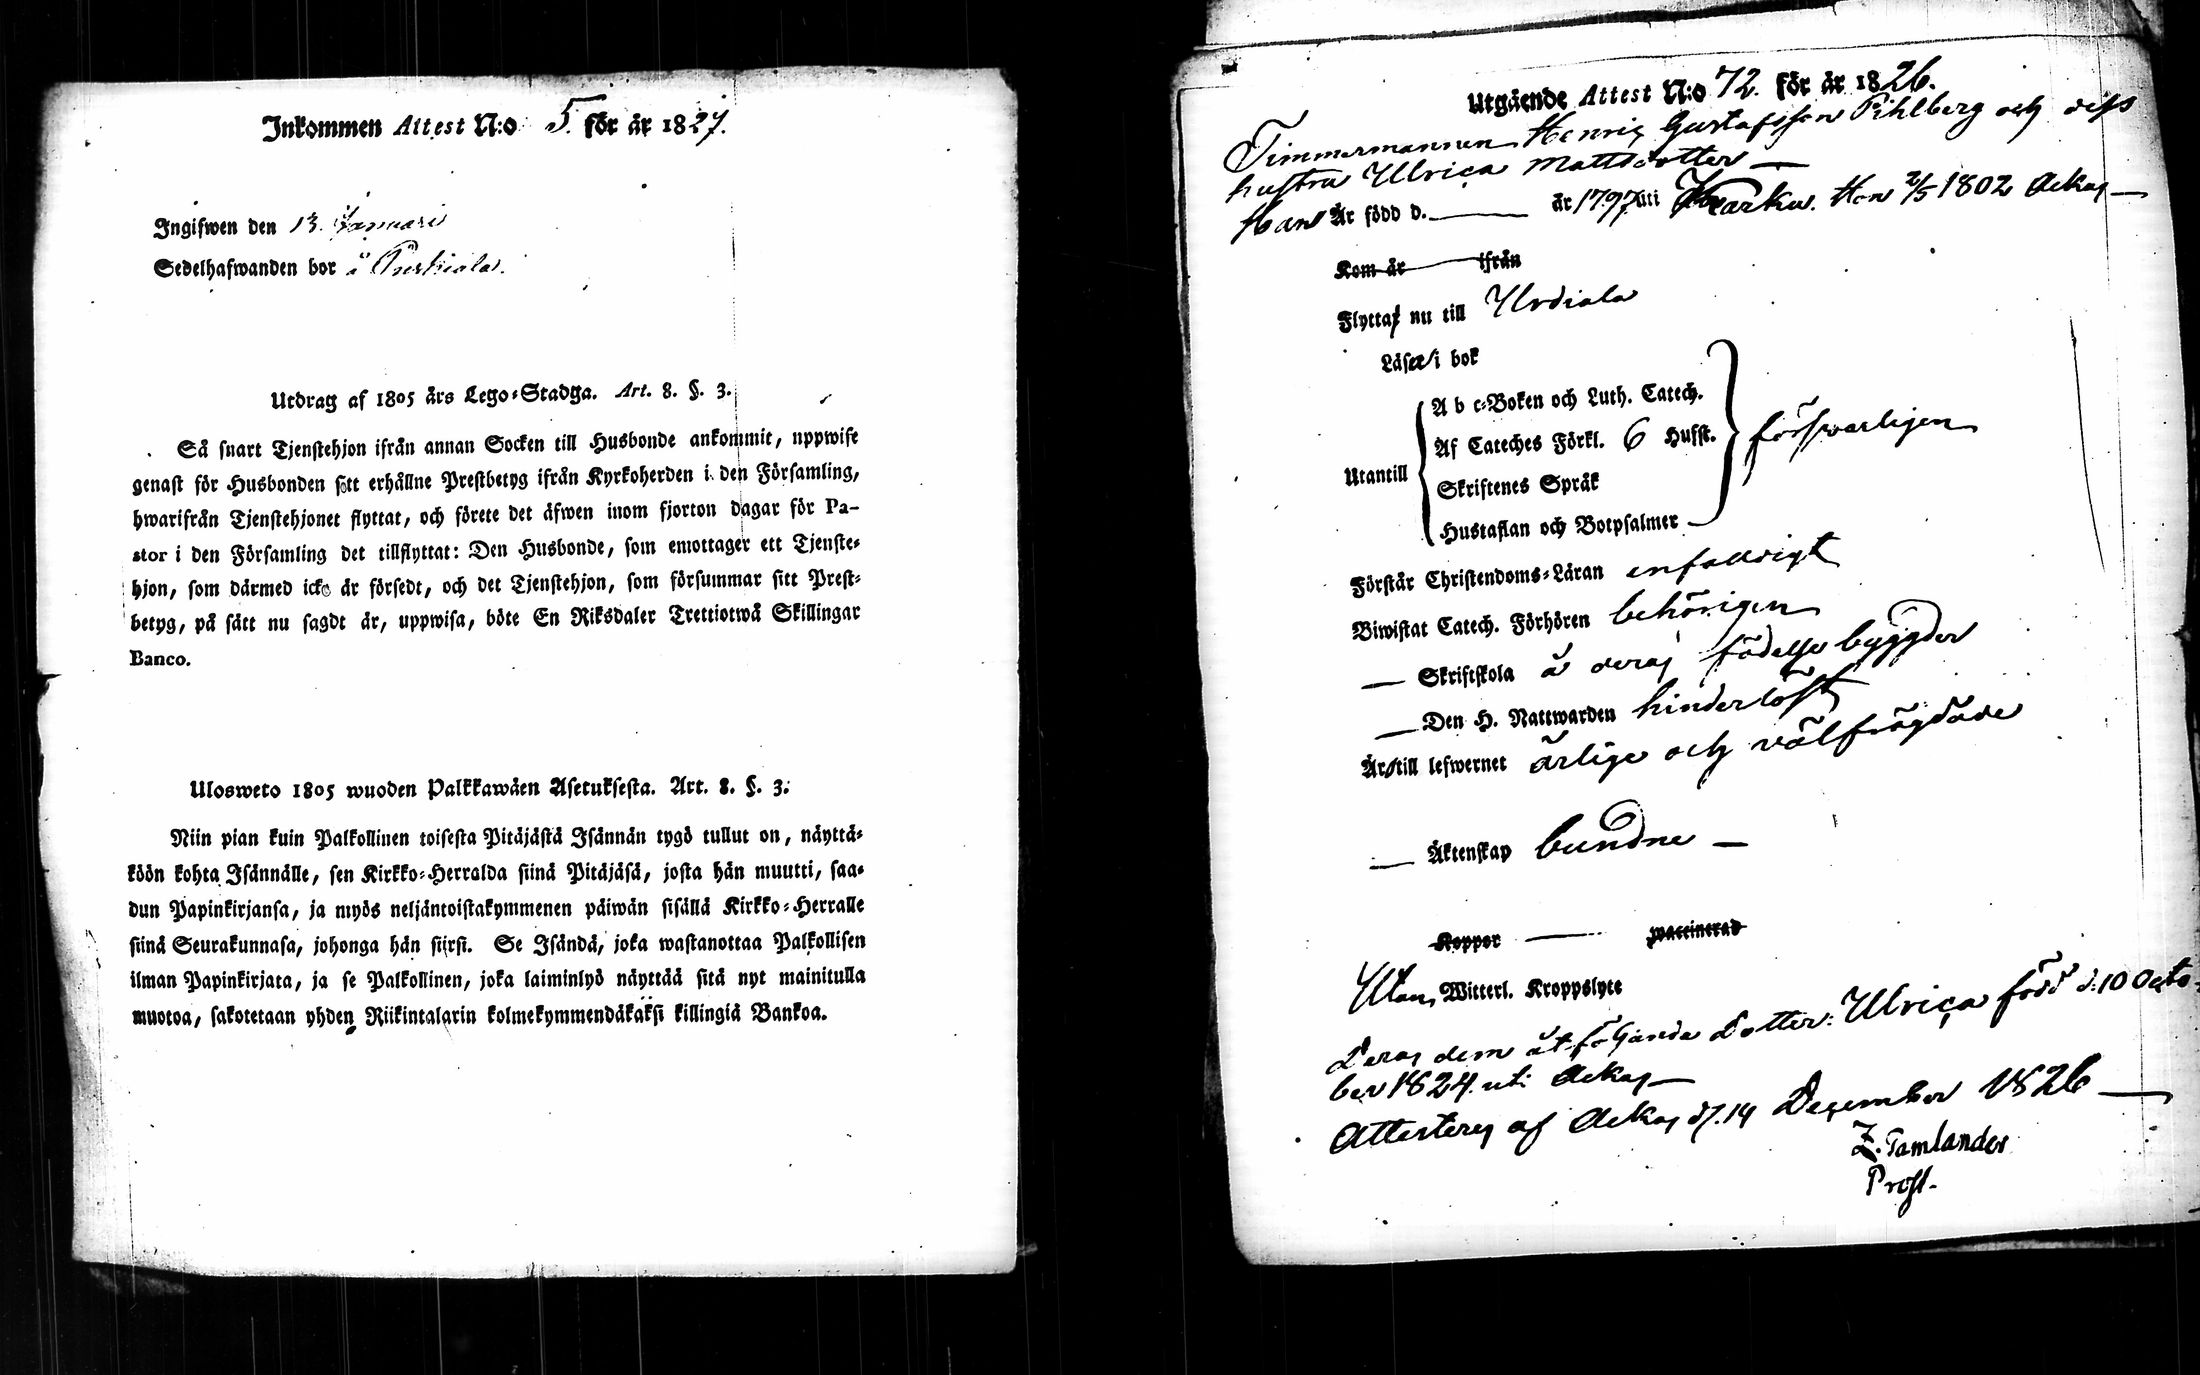 Inkommen Attest N:o 5. för år 1827.
Ingifwen den 13. Januari
Sedelhafwanden bor å Puskiala.
Utdrag af 1805 års Lego-Stadga. Art. 8. §. 3.
Så snart Tjenstehjon ifrån annan Socken till Husbonde ankommit, uppwise
genast för Husbonden sitt erhållne Prestbetyg ifrån Kyrkoherden i den Församling,
hwarifrån Tjenstehjonet flyttat, och förete det äfwen inom fjorton dagar för Pa-
stor i den Församling det tillflyttat: Den Husbonde, som emottager ett Tjenste-
hjon, som därmed icke är försedt, och det Tjenstehjon, som försummar sitt Prest-
betyg, på sätt nu sagdt är, uppwisa, böte En Riksdaler Trettiotwå Skillingar
Banco.
Ulosweto 1805 wuoden Palkkawäen Asetuksesta. Art. 8. §. 3.
Niin pian kuin Palkollinen toisesta Pitäjästä Isännän tygö tullut on, näyttä-
köön kohta Isännälle, sen Kirkko-Herralda siinä Pitäjäsä, josta hän muutti, saa-
dun Papinkirjansa, ja myös neljäntoistakymmenen päiwän sisällä Kirkko-Herralle
siinä Seurakunnasa, johonga hän siirsi. Se Isändä, joka wastanottaa Palkollisen
ilman Papinkirjata, ja se Palkollinen, joka laiminlyö näyttää sitä nyt mainitulla
muotoa, sakotetaan yhden Riikintalarin kolmekymmendäkaksi killingiä Bankoa.
Utgående Attest N:o 72. för år 1826.
Timmermannen Henric Gustafsson Pihlberg och dess
hustru Ulrica Mattsdotter
Han Är född d. år 1797 uti Karku. Hon 2/5 1802 Ackas
Kom år ifrån
Flytta nu till Urdiala
Läsa i bok
A b c-Boken och Luth. Catech.
Af Cateches Förkl. 6 Hufst.
Utantill
försvarligen
Skriftenes Språk
Hustaflan och Botpsalmer
Förstår Christendoms-Läran enfaldigt
Biwistat Catech. Förhören behörigen
— Skriftskola å deras födelse bygder
— Den H. Nattwarden hinderlöst
Är till lefwernet ärlige och välfrägdade
— Äktenskap bundne —
Koppor waccinerad
Utan Witterl. Kroppslyte
Deras dem åtföljande dotter: Ulrica född d. 10 Octo-
ber 1824 uti Ackas
Attesteras af Ackas d. 14 December 1826
Z. Tamlander
Prost.